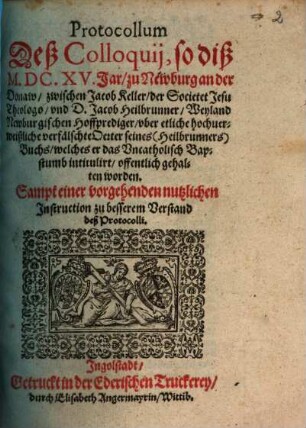 2
Protocollum
Deß Colloquij, so diß
M. DC. XV. Jar/ zu Newburg an der
Donaw/ zwischen Jacob Keller/ der Societet Jesu
Theologo/ vnd D. Jacob Heilbrunner/ Weyland
Newburgischen Hoffprediger/ vber etliche hochuer-
weißliche verfälschte Oerter seines (Heilbrunners)
Buchs/ welches er das Vncatholisch Bap-
stumb intitulirt/ offentlich gehal-
ten worden.
Sampt einer vorgehenden nutzlichen
Instruction zu besserem Verstand
deß Protocolli.
Ingolstadt/
Getruckt in der Ederischen Truckerey/
durch Elisabeth Angermayrin/ Wittib.